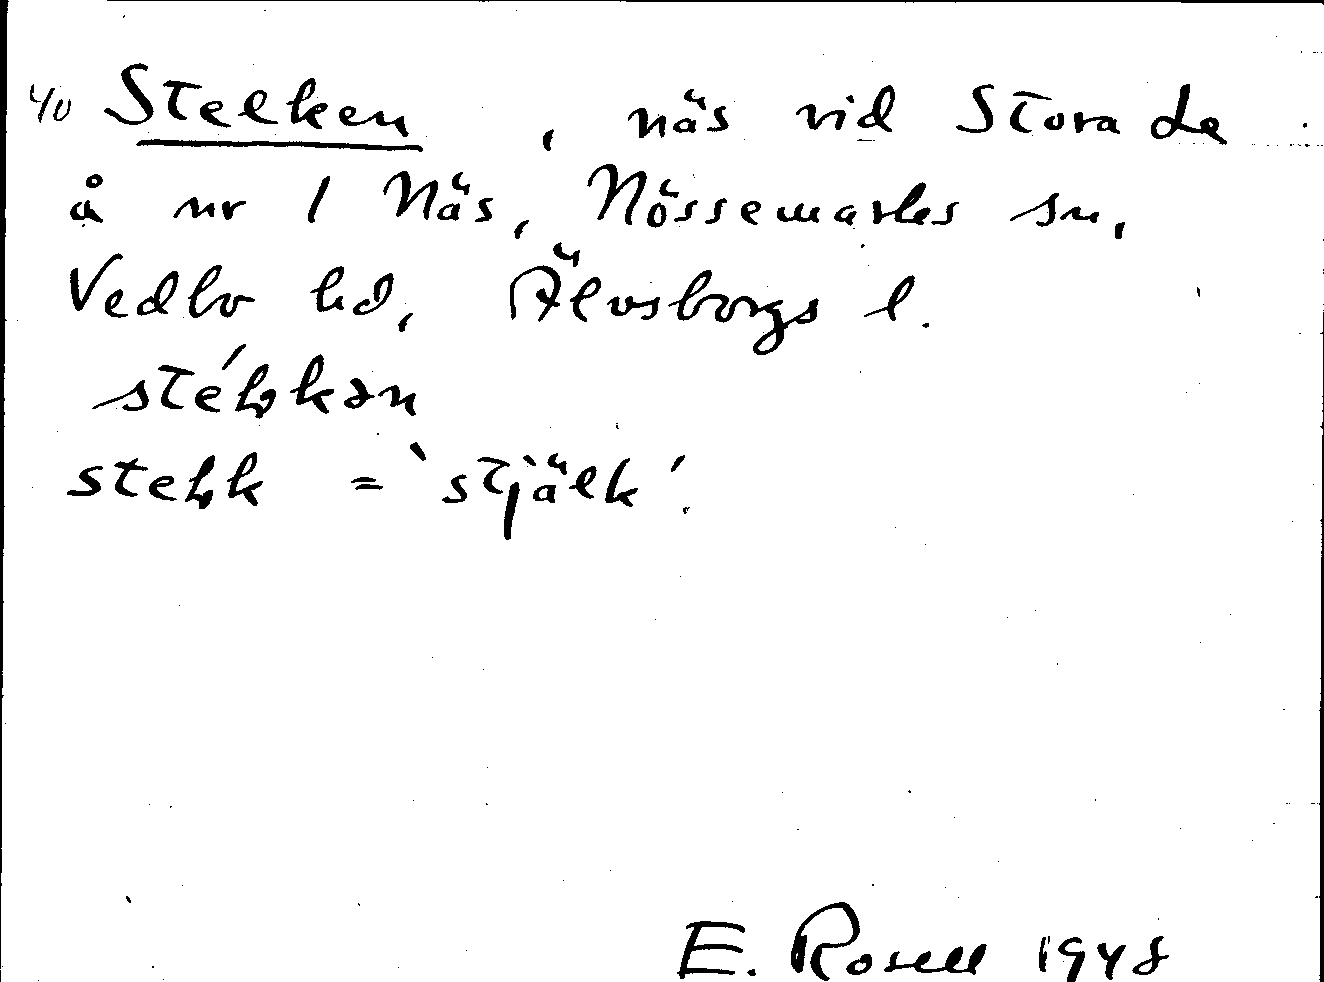 40 Stelken, näs vid Stora Le
å nr 1 Näs, Nössemarks sn,
Vedbo hd, Älvsborgs l.
stéłkən
stełk = `stjälk´.
E. Rosell 1948